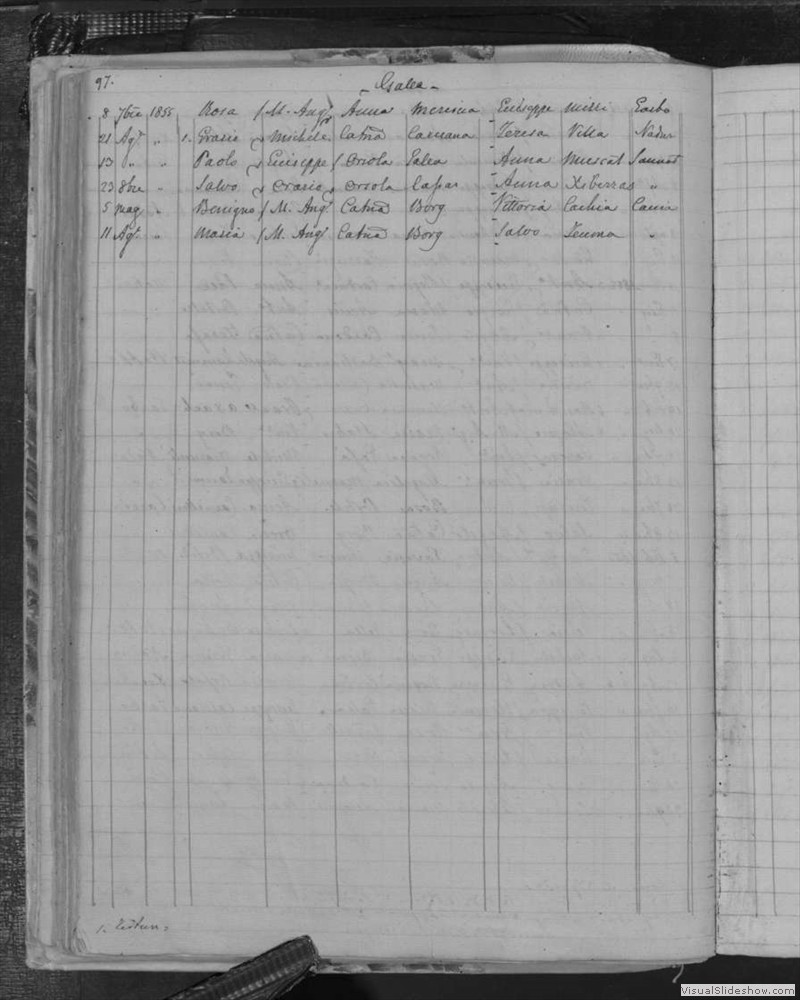 97.
Galea
8 7bre 1855 Rosa M. Ango Anna Mercieca Giuseppe Mizzi Garbo
21 Ago " 1. Grazio Michele Catna Caruana Teresa Vella Nadur
13 " " Paolo Giuseppe Orsola Galea Anna Muscat Sannat
23 8bre " Salvo Grazio Orsola Cassar Anna Xiberras "
5 Mag " Benigno M. Ango Catna Borg Vittoria Cachia Caccia
11 Ago " Maria M. Ango Catna Borg Salvo "
1.
VisualSlideshow.com